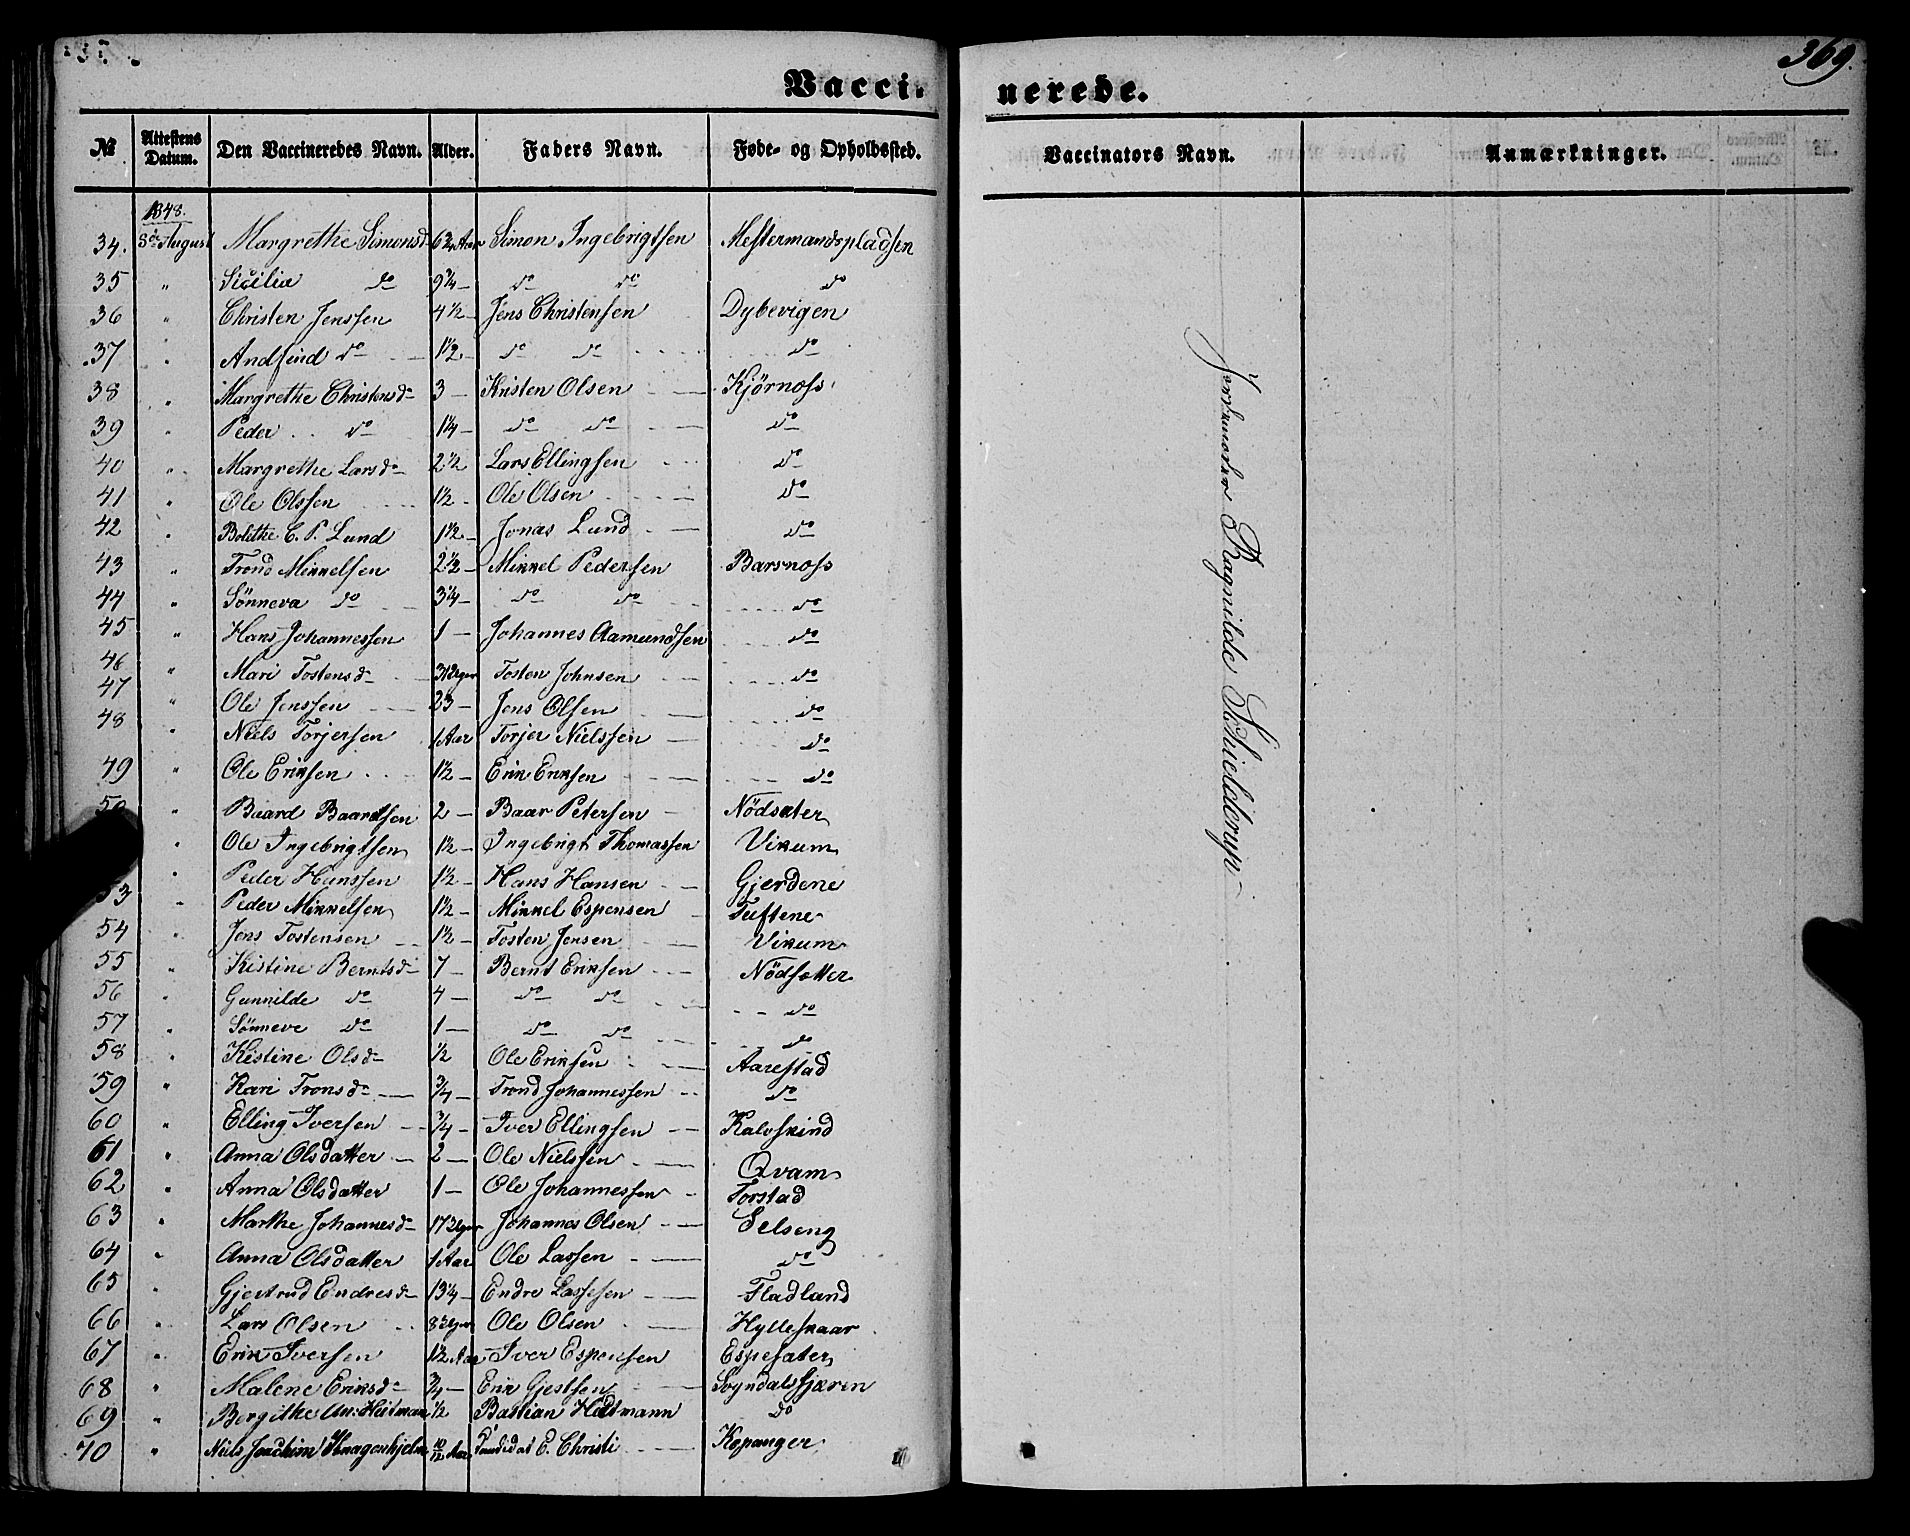 369.
Vacci- nerede.
№ Attestens Datum. Den Vaccineredes Navn. Alder. Faders Navn. Føde- og Opholdssted. Vaccinators Navn. Anmærkninger.
1848.
34. 8de August Margrethe Simonsd. 6 3/4 Aar Simon Ingebrigtsen Mestermandspladsen
35 " Sicilia do 9 3/4 – do do do
36 " Christen Jenssen 4 1/2 – Jens Christensen Dybevigen
37 " Andfind do 1 1/2 – do do do
38 " Margrethe Christensd 3 – Kristen Olsen Kjörnoss
39 " Peder do 1 1/4 – do do do
40 " Margrethe Larsd 2 1/2 Lars Ellingsen do
41 " Ole Olssen 1 1/2 – Ole Olsen do
42 " Bolethe C. P. Lund 1 1/2 – Jonas Lund do
43 " Trond Mikkelsen 2 1/2 – Mikkel Pedersen Barsnoss
44 " Sönneva do 3 1/4 – do do do
45 " Hans Johannessen 1 – Johannes Aamundsen do
46 " Mari Tostensd Tosten Johnsen do
47 " Ole Jenssen 23 – Jens Olsen do
48 " Niels Torjersen 1 Aar Torjer Nielssen do
49 " Ole Eriksen 1 1/2 – Erik Eriksen do
50 Baard Baardsen 2 – Baar Petersen Nödsæter
" Ole Ingebrigtsen 1 1/2 – Ingebrigt Thomassen Vikum
" Peder Hanssen 1 1/2 – Hans Hansen Gjerdene
53 " Peder Mikkelsen 1 1/2 – Mikkel Espensen Tuftene
54 " Jens Tostensen 1 1/2 – Tosten Jensen Vikum
55 " Kistine Berntsd 7 – Bernt Eriksen Nödsætter
56 " Gunnilde do 4 – do do do
57 " Sönneve do 1 – do do do
58 " Kistine Olsd 1/2 Ole Eriksen Aarestad
59 " Kari Tronsd 3/4 – Trond Johannessen do
60 " Elling Iversen 3/4 – Iver Ellingsen Kalvskind
61 " Anna Olsdatter 2 – Ole Nielssen Qvam
62 " Anna Olsdatter 1 – Ole Johannessen Torstad
63 " Marthe Johannesd 17 Uger Johannes Olsen Selseng
64 " Anna Olsdatter 1 Aar Ole Lassen do
65 " Gjertrud Endresd 13/4 – Endre Lassesen Fladland
66 " Lars Olsen 8 Uger Ole Olsen Hylleskaar
67 " Erik Iversen 1 1/2 Aar Iver Espensen Espesæter
68 " Malene Eriksd 3/4 – Erik Gjestsen Sogndalsfjæren
69 " Bergithe An: Heitman 1/2 Bastian Heitmann do
70 " Niels Joachim Knagenhjelm 10/12 Aar Candidat E. Christi Kopanger
Jordemoder Ragnilde Schielderup